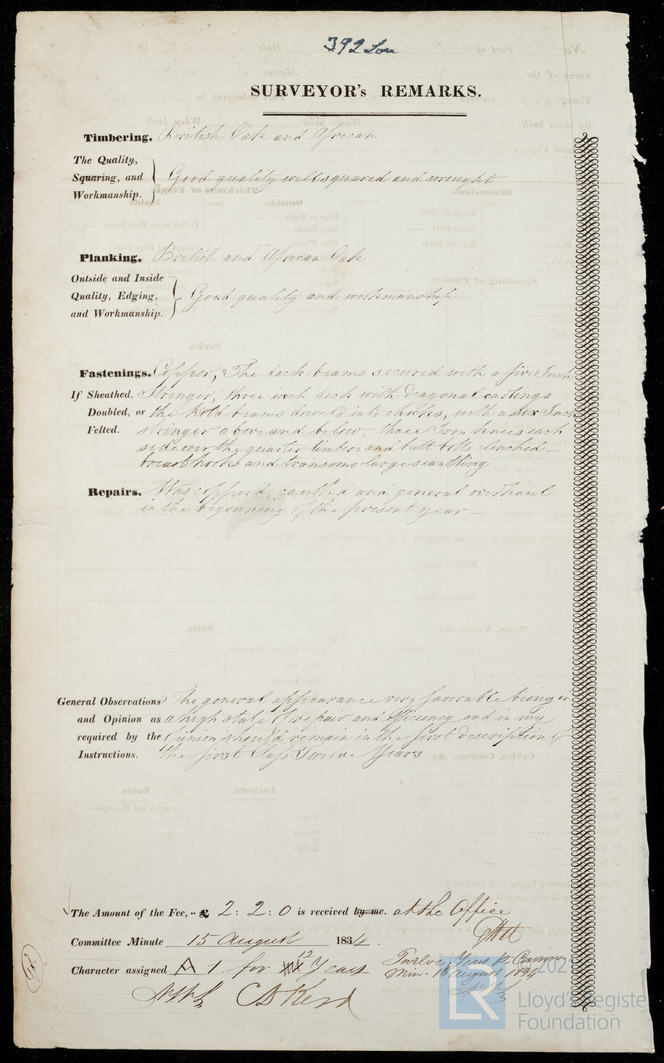 392 Lon
SURVEYOR's REMARKS.
Timbering. British Oak and African
The Quality,
Squaring, and Good quality well squared and wrought
Workmanship.
Planking. British and African Oak
Outside and Inside
Quality, Edging, Good quality and workmanship
and Workmanship.
Fastenings. Copper, The deck beams secured with a five Inch
If Sheathed. Stringer, three inch deck with diagonal castings
Doubled, or the hold beams into chocks, with a six Inch
Felted. stringer above and below, three Iron knees each
side the quarter timbers and butt bolts clenched
breasthooks and transoms large scantling
Repairs. Was copperd, caulked and general overhaul
in the beginning of the present year
General Observations The general appearance very favorable being in
and Opinion as a high state of repair and efficiency and in my
required by the opinion should remain in the first description of
Instructions. the first Class Twelve Years
The Amount of the Fee, £ 2: 2: 0 is received by me. at the Office
Committee Minute 15 August 1834.
Character assigned A 1 for 12 Years
Twelve Years
Min. August 1834
LR
Lloyd's Register
Foundation